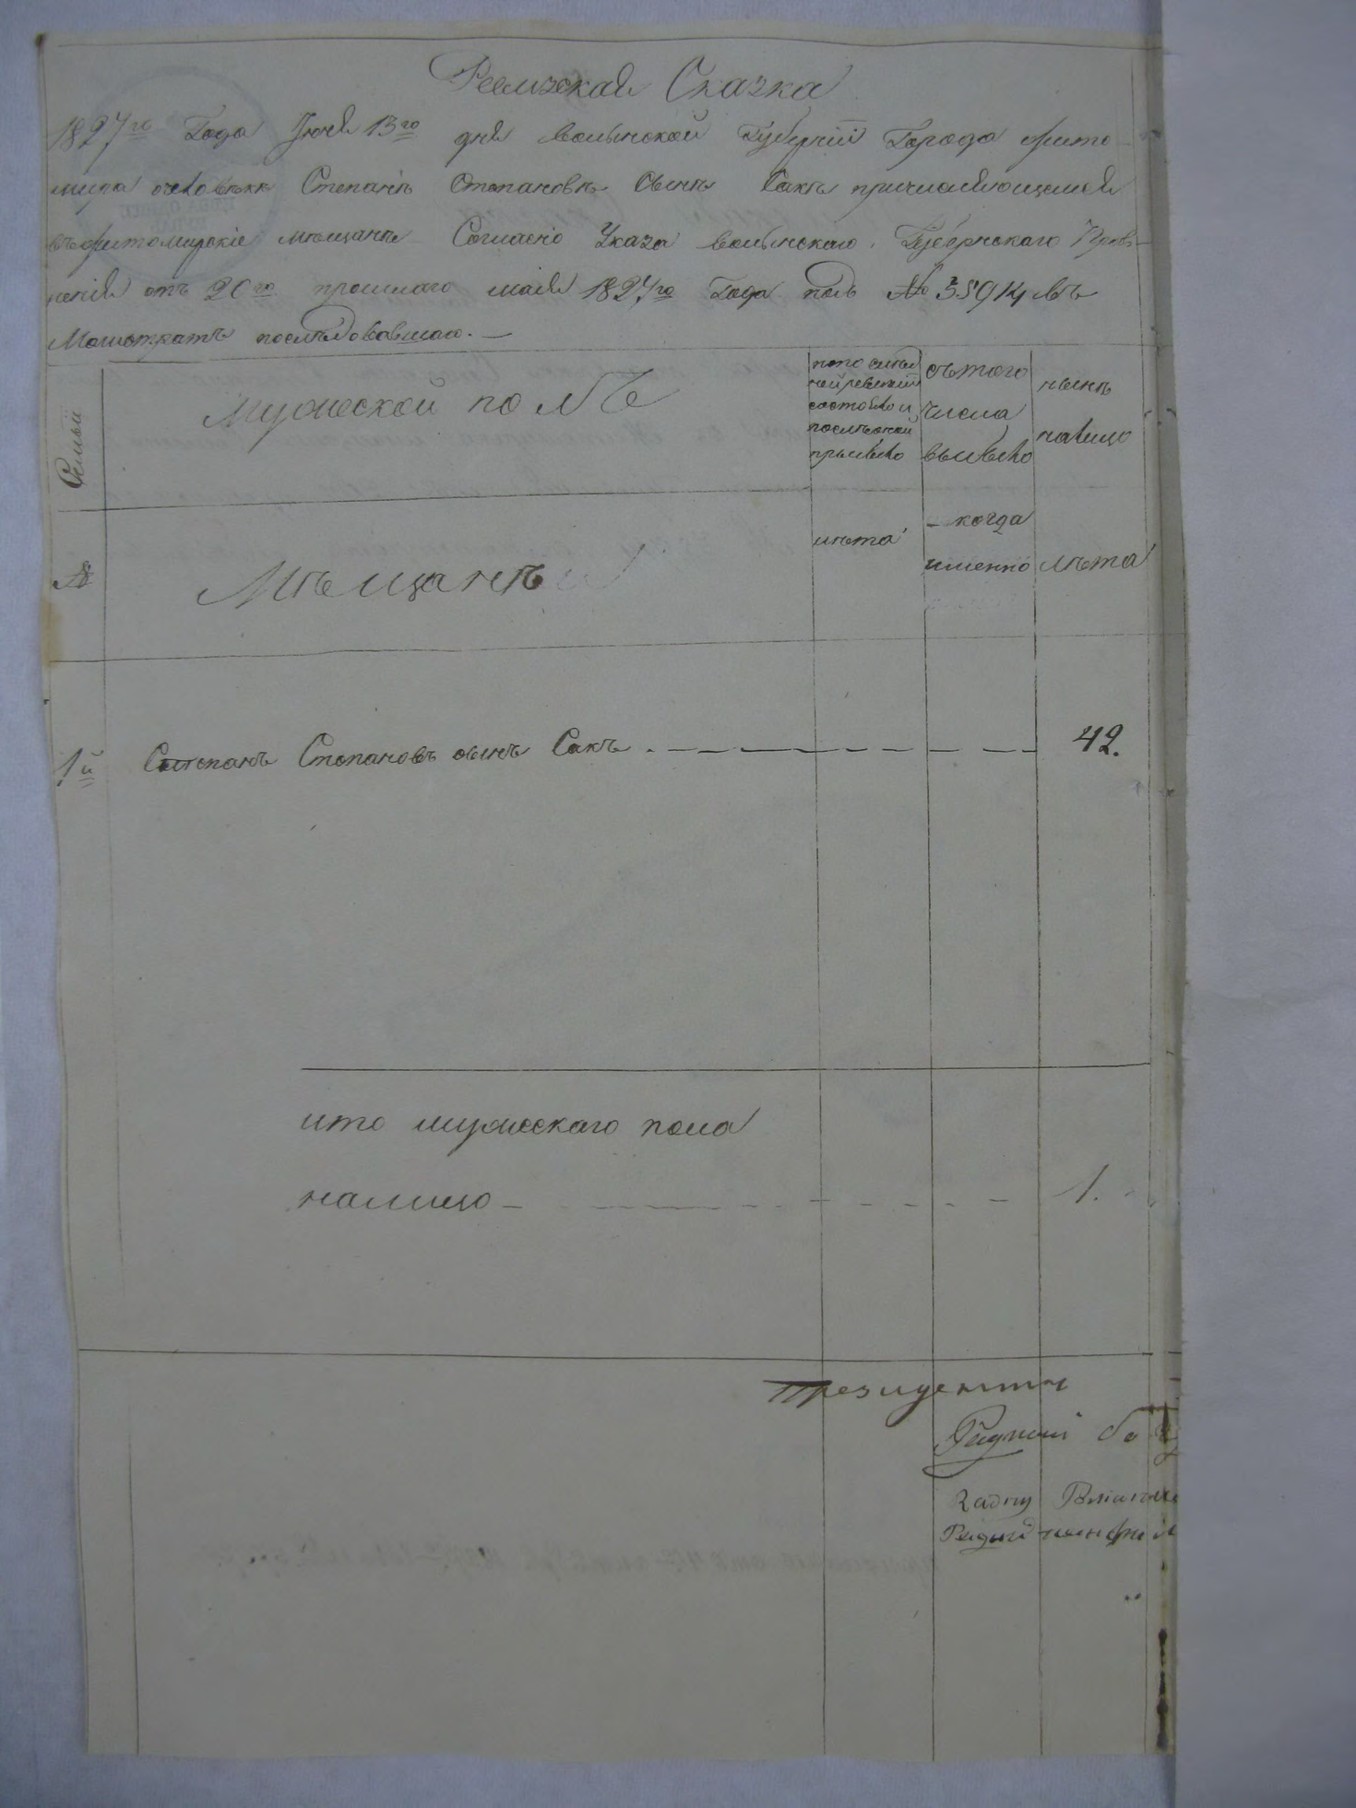 Ревизская Сказка
1827го Года Июня 13го дня Волынской Губернии Города Жито
мира о человеке Степане Степановѣ Сынѣ Сакѣ причисляющемся
въ житомирскіе мѣщане Согласно Указа Волынскаго Губернскаго Прав
ленія отъ 20го прошлаго мая 1827го Года подъ № 35914 въ
Магистратъ последовавшаго. —
Семьи
Мужеской полЪ
по последней ревизии состояло и после оной прибыло
съ того числа выбыло
нынѣ налицо
№
Мѣщанѣ
лѣта
— когда именно
лѣта
1й Степанъ Степановъ сынъ Сакъ . — — — — — 42.
ито мужескаго пола
налицо — — — — — 1.
Президентъ